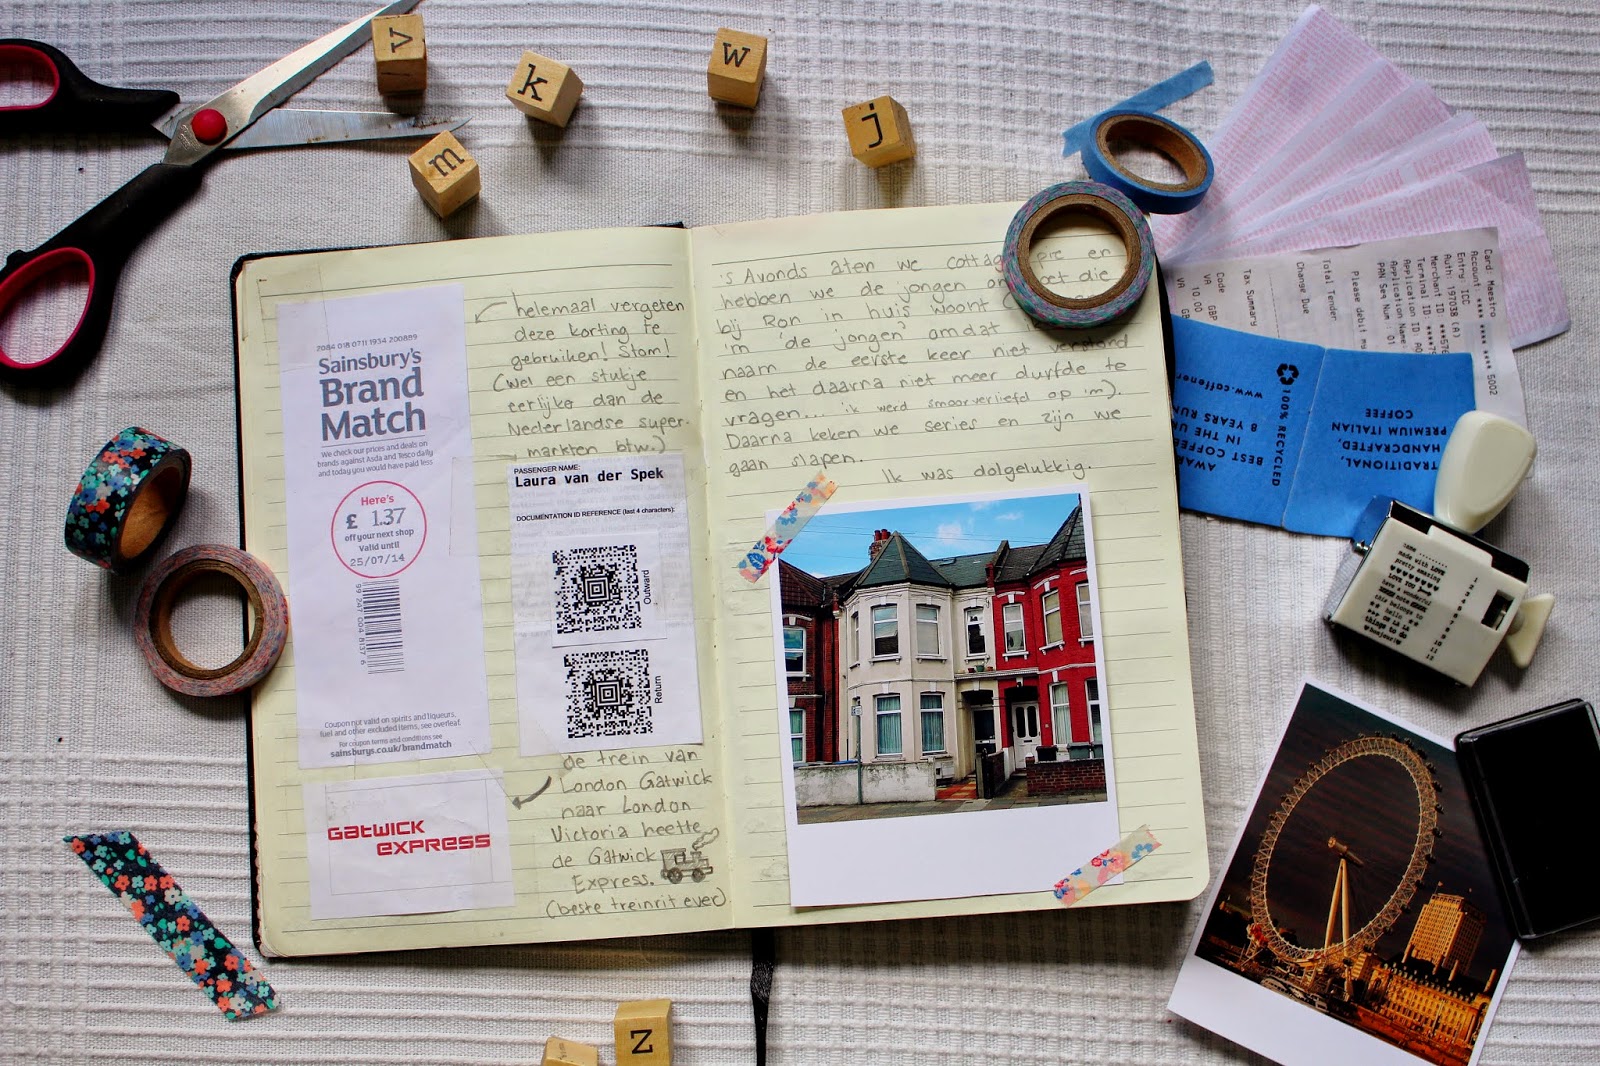 v
k
w
j
m
2084 018 0711 1934 200899
Sainsbury's
Brand
Match
We check our prices and deals on
brands against Asda and Tesco daily
and today you would have paid less
Here's
£ 1.37
off your next shop
Valid until
25/07/14
99 247 004 8137 6
Coupon not valid on spirits and liqueurs,
fuel and other excluded items, see overleaf.
For coupon terms and conditions see
sainsburys.co.uk/brandmatch
GATWICK
EXPRESS
helemaal vergeten
deze korting te
gebruiken! Stom!
(wel een stukje
eerlijke dan de
Nederlandse super-
markten btw.)
PASSENGER NAME:
Laura van der Spek
DOCUMENTATION ID REFERENCE (last 4 characters):
Outward
Return
de trein van
London Gatwick
naar London
Victoria heette
de Gatwick
Express.
(beste treinrit ever)
's Avonds aten we cottage pie en
hebben we de jongen ontmoet die
bij Ron in huis woont
'm 'de jongen' omdat
naam de eerste keer niet verstond
en het daarna niet meer durfde te
vragen... ik werd smoorverliefd op 'm).
Daarna keken we series en zijn we
gaan slapen.
Ik was dolgelukkig.
Card: Maestro
Account: **** **** **** 5002
Entry: ICC
Auth: 197038 (A)
Merchant ID:
Terminal ID:
Application ID: A0
Application Name:
PAN Seq Num: 01
Please debit my
Total Tender
Change Due
Tax Summary
Code GBP
VA 10.00
VA
www.caffener
100% RECYCLED
AWA
BEST COFFEE
IN THE U
8 YEARS RUN
TRADITIONAL,
HANDCRAFTED,
PREMIUM ITALIAN
COFFEE
made with LOVE
pretty amazing
LOVE YOU
have a wonderful
this belongs to
hello
things to do
bonjour
10
11
12
z